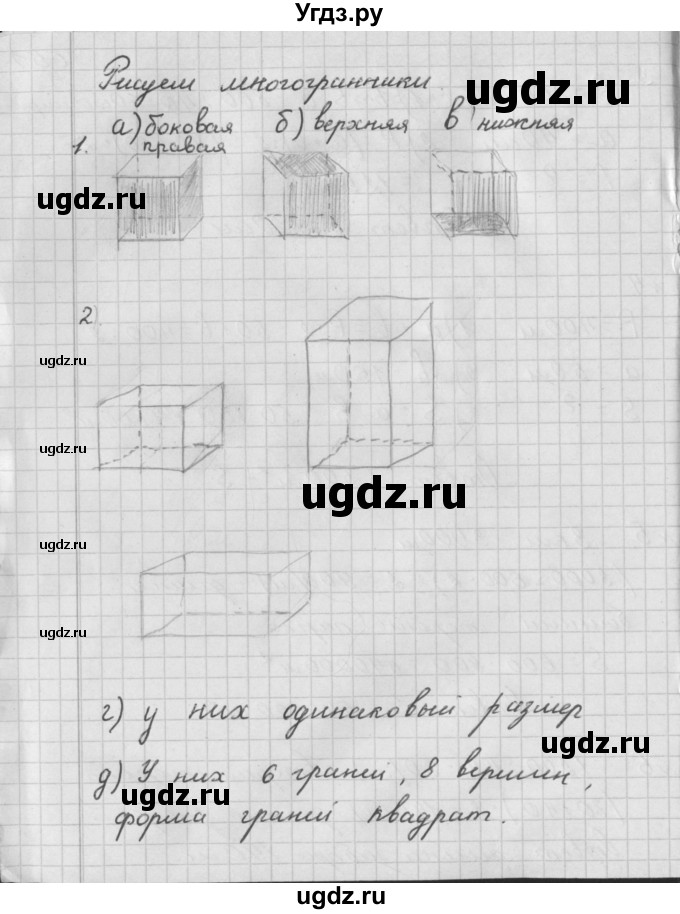 Угдз.ру
Рисуем многогранники
а) боковая б) верхняя в нижняя
1. правая
ugdz.ru
ugdz.ru
ugdz.ru
2)
ugdz.ru
ugdz.ru
ugdz.ru
ugdz.ru
ugdz.ru
г) у них одинаковый размер
ugdz.ru
д) У них 6 граней, 8 вершин,
ugdz.ru
форма граней квадрат.
ugdz.ru
ugdz.ru